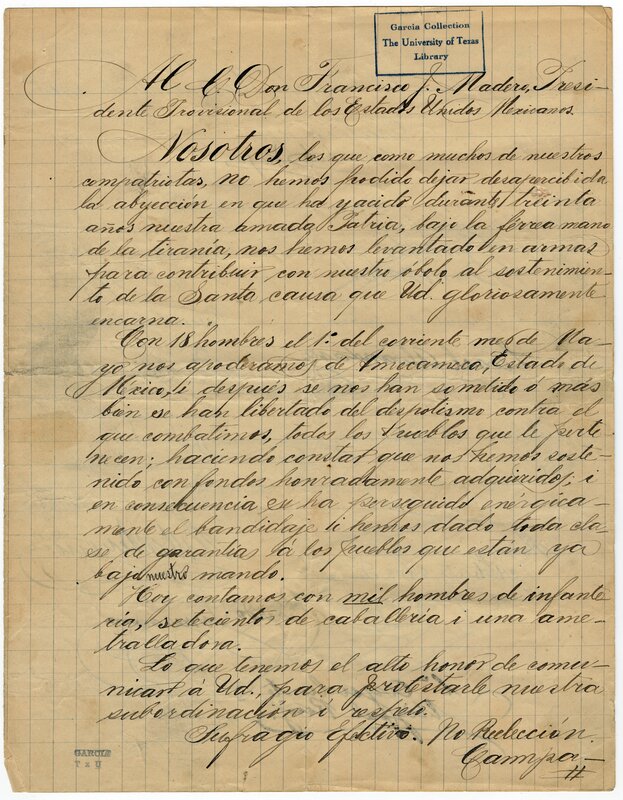 Garcia Collection
The University of Texas
Library
Al C. Don Francisco J. Madero, Presi-
dente Provisional de los Estados Unidos Mexicanos.
Nosotros, los que como muchos de nuestros
compatriotas, no hemos podido dejar desapercibida
la abyección en que ha yacido durante treinta
años nuestra amada Patria, bajo la férrea mano
de la tiranía, nos hemos levantado en armas
para contribuir con nuestro óbolo al sostenimien-
to de la Santa causa que Ud. gloriosamente
encarna.
Con 18 hombres el 1º del corriente mes de Ma-
yo nos apoderamos de Amecameca, Estado de
México, i después se nos han sometido ó más
bien se han libertado del despotismo contra el
que combatimos, todos los pueblos que le perte
necen; haciendo constar que nos hemos soste-
nido con fondos honradamente adquiridos, i
en consecuencia se ha perseguido enérgica-
mente el bandidaje i hemos dado toda cla-
se de garantías á los pueblos que están ya
bajo nuestro mando.
Hoy contamos con mil hombres de infante
ría, setecientos de caballería i una ame-
tralladora.
Lo que tenemos el alto honor de comu-
nicar á Ud., para protestarle nuestra
subordinación i respeto.
Sufragio Efectivo. No Reelección.
Campa-
//
GARCIA
T x U